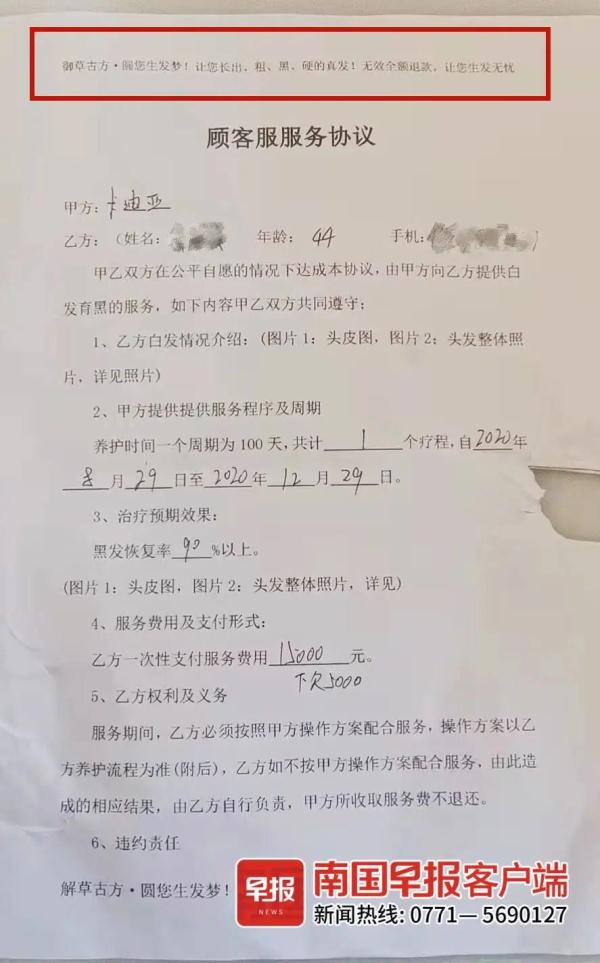 御草古方·圆您生发梦！让您长出、粗、黑、硬的真发！无效全额退款，让您生发无忧
顾客服服务协议
甲方：卡迪亚
乙方：（姓名： 年龄：44 手机： ）
甲乙双方在公平自愿的情况下达成本协议，由甲方向乙方提供白
发育黑的服务，如下内容甲乙双方共同遵守；
1、乙方白发情况介绍：(图片1：头皮图，图片2：头发整体照
片，详见照片)
2、甲方提供提供服务程序及周期
养护时间一个周期为100天,共计1个疗程，自2020年
8月29日至2020年12月29日。
3、治疗预期效果：
黑发恢复率90%以上。
(图片1：头皮图，图片2：头发整体照片，详见)
4、服务费用及支付形式：
乙方一次性支付服务费用15000元。
下欠5000
5、乙方权利及义务
服务期间，乙方必须按照甲方操作方案配合服务，操作方案以乙
方养护流程为准(附后)，乙方如不按甲方操作方案配合服务，由此造
成的相应结果，由乙方自行负责，甲方所收取服务费不退还。
6、违约责任
解草古方·圆您生发梦！
早报
NEWS
南国早报客户端
新闻热线:0771—5690127